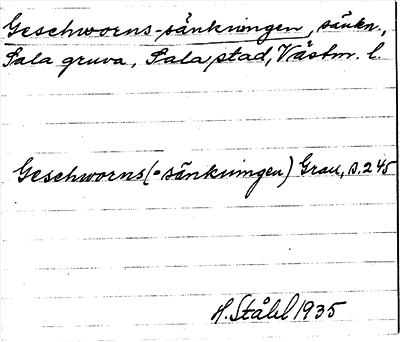 Geschworns-sänkningen, säukn.,
Sala gruva, Sala stad, Västm. l.
Geschworns(=sänkningen) Grau, s. 245
H. Ståhl 1935